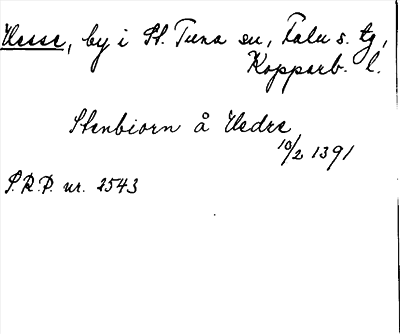 Uesse, by i St. Tuna sn, Falu s. tg,
Kopparb. l.
Stenbiorn å Uedre
10/2 1391
S.R.P. nr. 2543